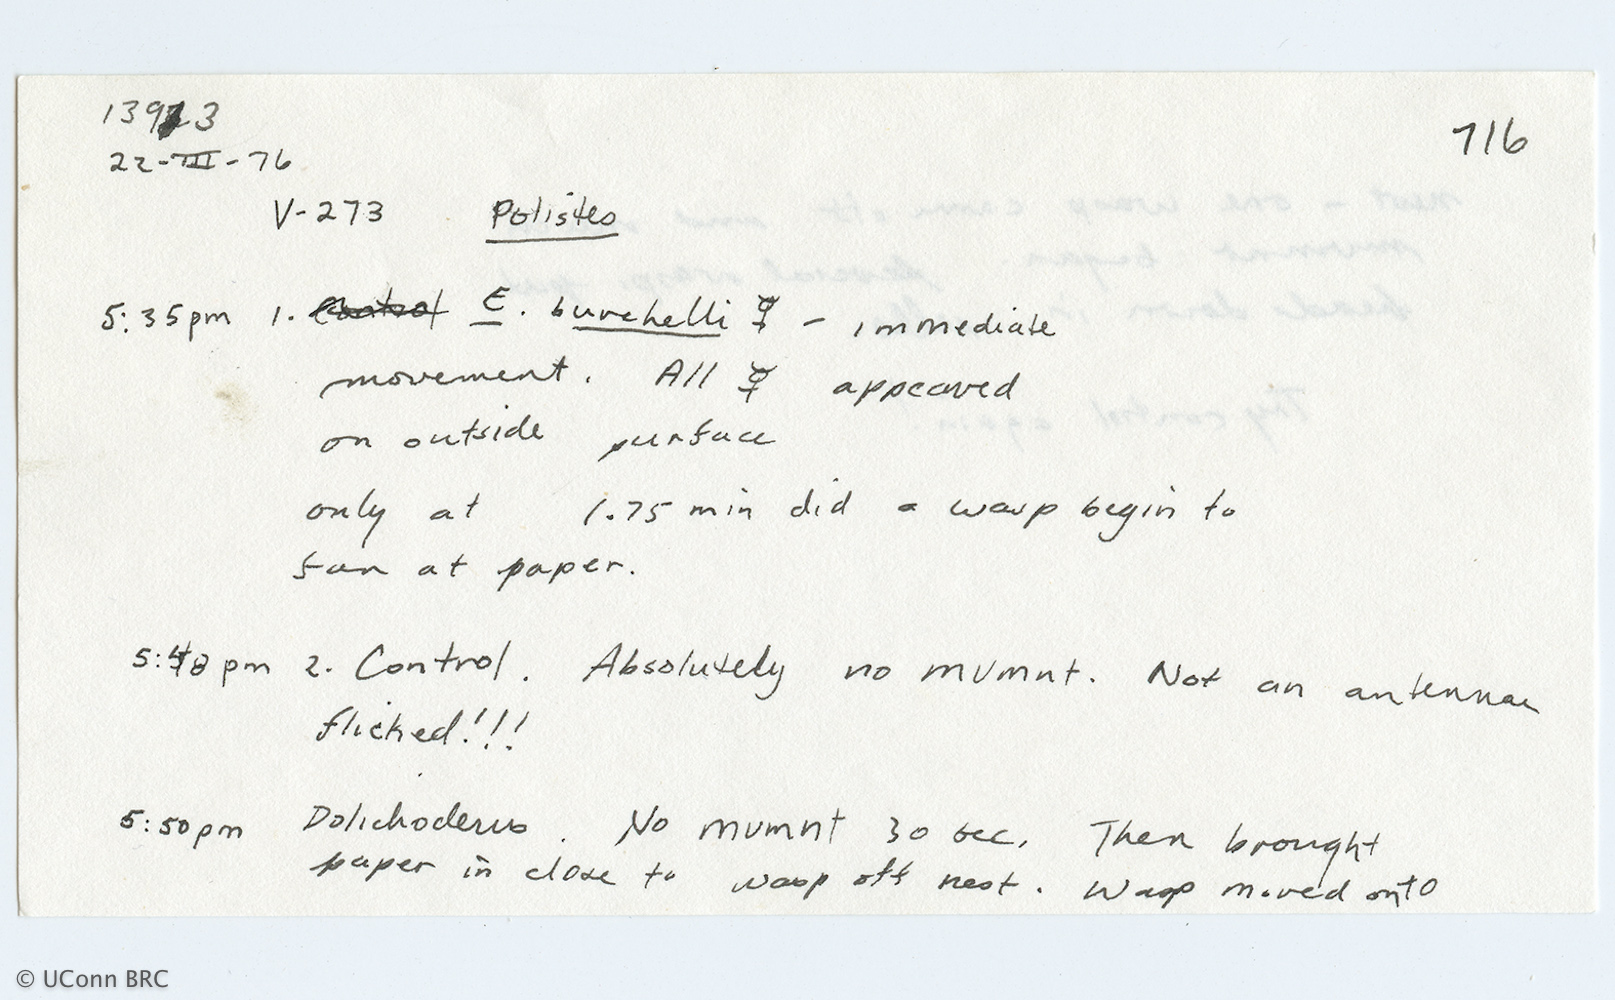 13913
716
22-III-76
V-273 Polistes
5:35pm 1. Control E. burchelli ☿ – immediate
movement. All ☿ appeared
on outside surface
only at 1.75 min did a wasp begin to
fan at paper.
5:48 pm 2. Control. Absolutely no mvmnt. Not an antennae
flicked!!!
5:50pm Dolichoderus. No mvmnt 30 sec. Then brought
paper in close to wasp off nest. Wasp moved onto
© UConn BRC